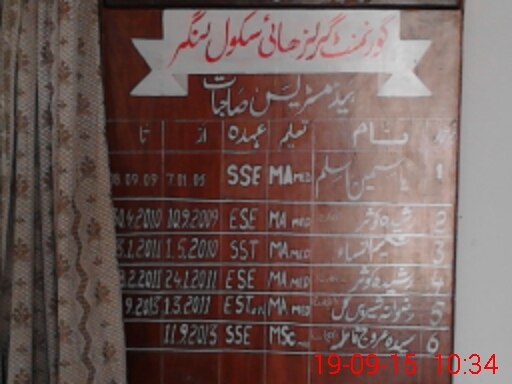 گورنمنٹ گرلز ھائی سکول لنگر
ہیڈمسٹریس صاحبات
نام تعلیم عہدہ از تا
1 یاسمین اسلم MA MED SSE 7.01.05 08.09.09
2 کوثر MA MED ESE 10.9.2009 30.4.2010
3 النساء MA MED SST 1.5.2010 1.2011
4 رشیدہ کوثر MA MED ESE 24.1.2011 2.2011
5 رضوانہ شیریں گل MA MED EST 1.3.2011 9.2013
6 سیدہ عروج فاطمہ MSc SSE 11.9.2013
19-09-15 10:34